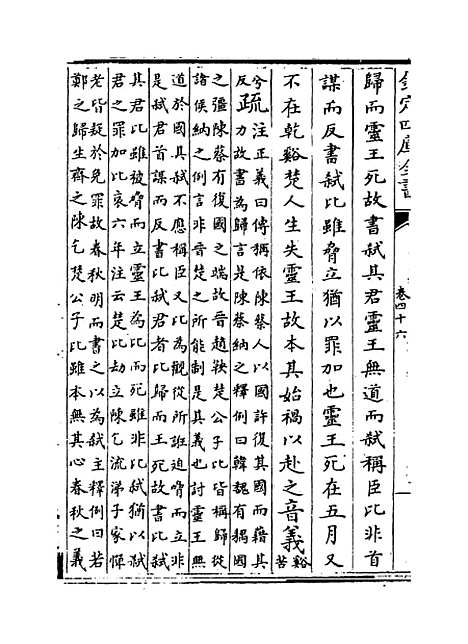 欽定四庫全書
卷四十六
歸而靈王死故書弑其君靈王無道而弑稱臣比非首
謀而反書弑比雖脅立猶以罪加也靈王死在五月又
不在乾谿楚人生失靈王故本其始禍以赴之音義谿
苦
兮反疏注正義曰傳稱依陳蔡人以國許復其國而藉其
力故書為歸言是陳蔡納之釋例曰韓魏有耦國
之彊陳蔡有復國之端故晉趙鞅楚公子比皆稱歸從
諸侯納之例言非晉楚之所能制是其義也討靈王無
道於國其弑不應稱臣又比為觀從所誑迫脅而立非
是弑君首謀而反書比弑君者比歸而王死故書比弑
其君比雖被脅而立靈王為比而死雖非比弑猶以弑
君之罪加比哀六年注云楚比劫立陳乞流涕子家憚
老皆疑於免罪故春秋明而書之以為弑主釋例曰若
鄭之歸生齊之陳乞楚公子比雖本無其心春秋之義